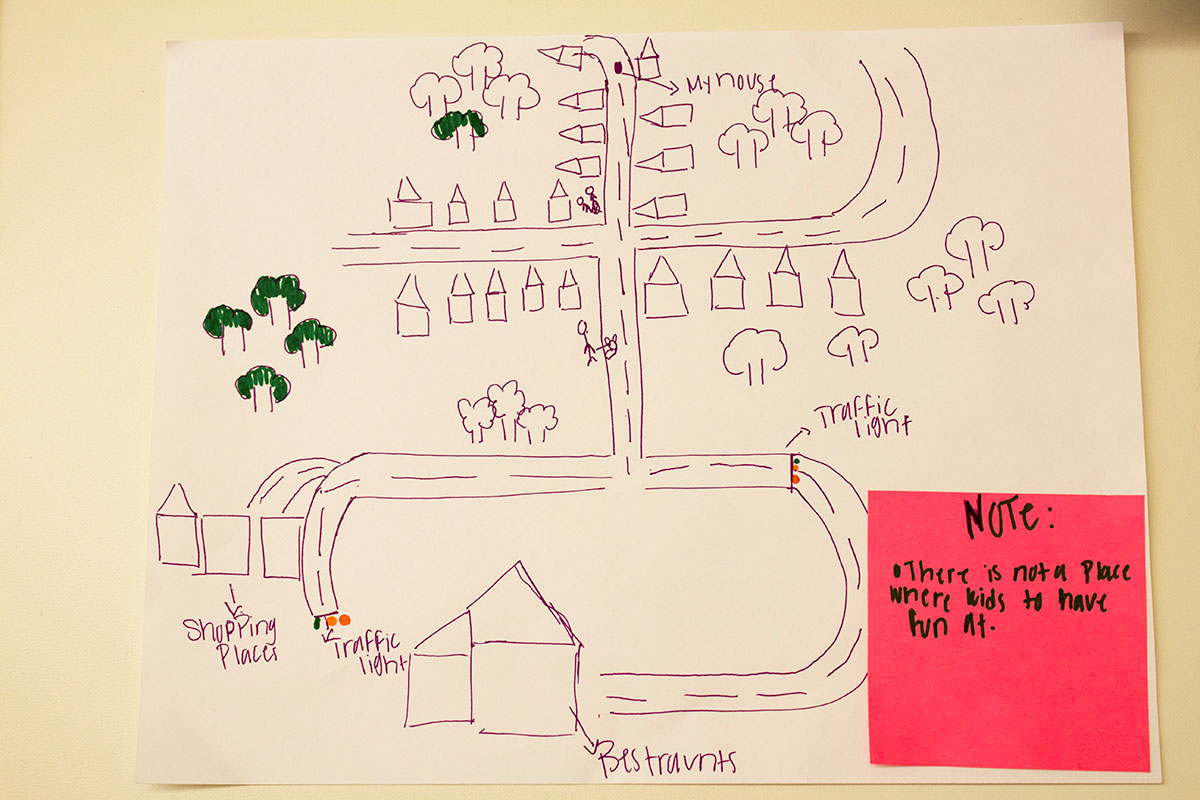 My house
Traffic
light
NOTE:
• There is not a Place
where kids to have
fun At.
Shopping
Places
Traffic
light
Bestraunts